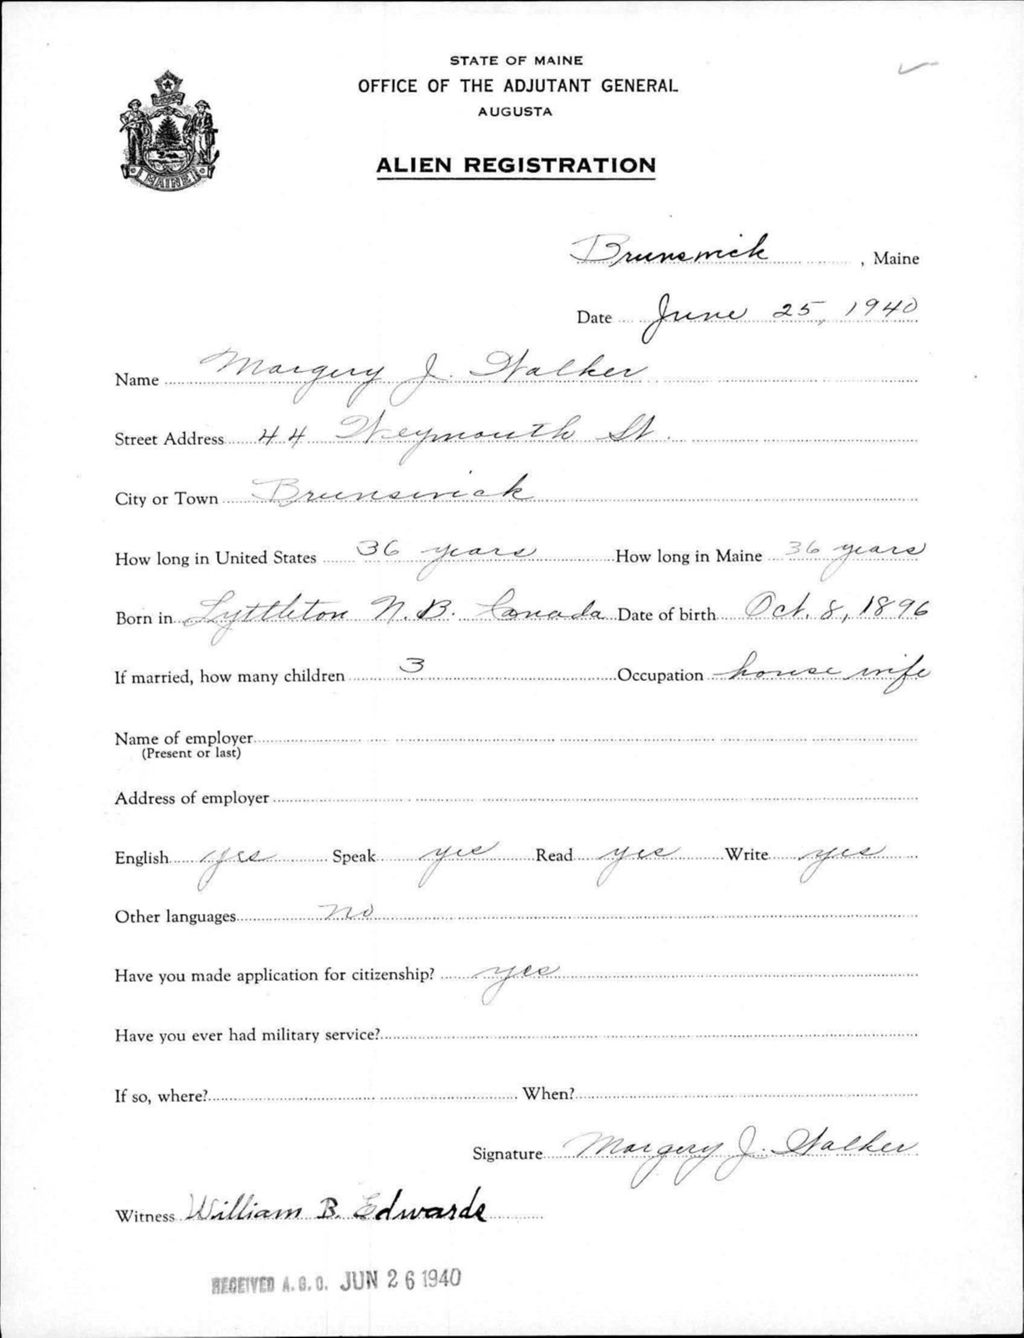 STATE OF MAINE
OFFICE OF THE ADJUTANT GENERAL
AUGUSTA
ALIEN REGISTRATION
MAINE
Brunswick, Maine
Date June 25, 1940
Name Margery J. Walker
Street Address 44 Weymouth St.
City or Town Brunswick
How long in United States 36 years How long in Maine 36 years
Born in Lyttleton N.B. Canada Date of birth Oct. 8, 1896
If married, how many children 3 Occupation house wife
Name of employer
(Present or last)
Address of employer
English yes Speak yes Read yes Write yes
Other languages no
Have you made application for citizenship? yes
Have you ever had military service?
If so, where? When?
Signature Margery J. Walker
Witness William B. Edwards
RECEIVED A.G.O. JUN 26 1940